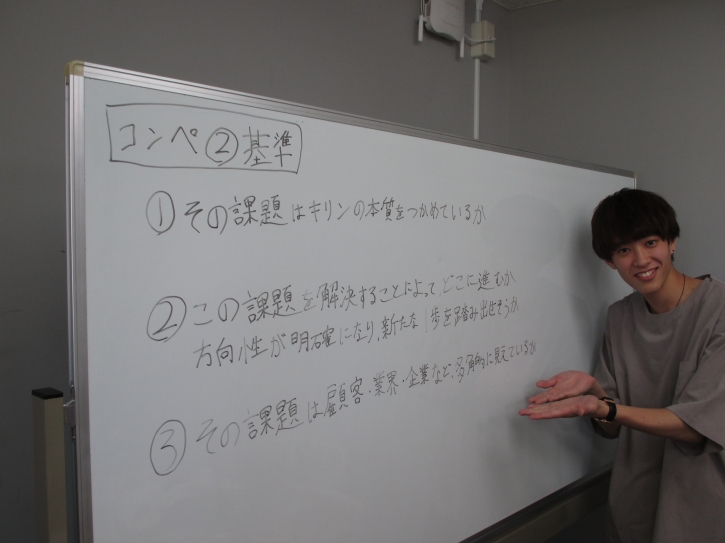 コンペ②基準
① その課題はキリンの本質をつかめているか
② この課題を解決することによって、どこに進むか
方向性が明確になり、新たな1歩を踏み出せそうか
③ その課題は顧客・業界・企業など、多角的に見えているか